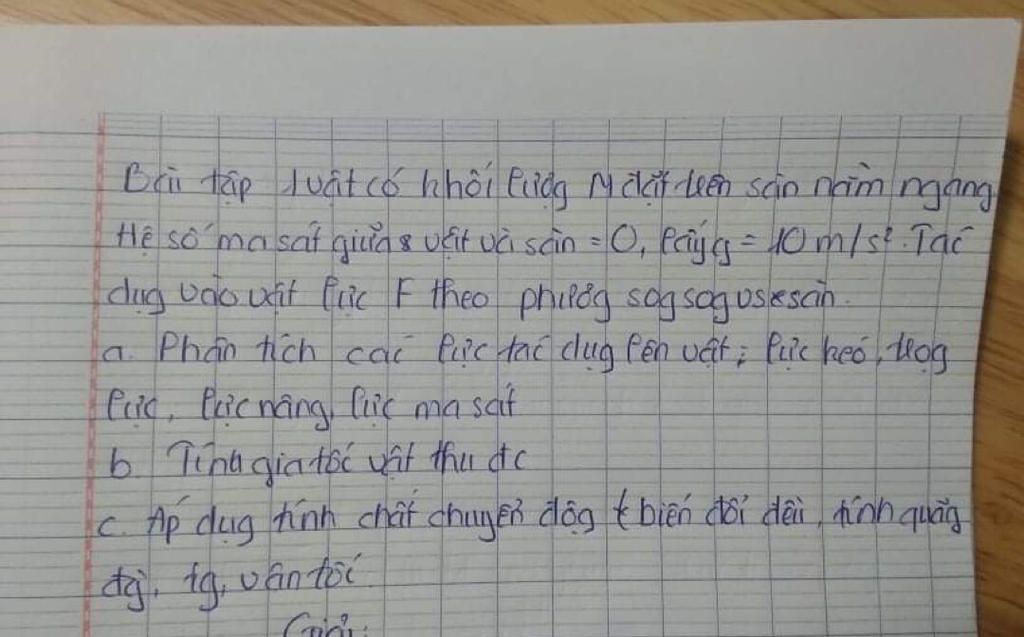 Bài tập 1 vật có khối lượg M đặt trên sàn nằm ngang
Hệ số ma sát giữa vật và sàn = 0, lấy g = 10 m/s². Tác
dụg vào vật lực F theo phươg sog sog vs sàn.
a. Phân tích các lực tác dụg lên vật; lực kéo, trọg
lực, lực nâng, lực ma sát
b. Tính gia tốc vật thu đc
c. Áp dụg tính chất chuyển độg t biến đổi đều, tính quãg
đg, tg, vận tốc
Giải: